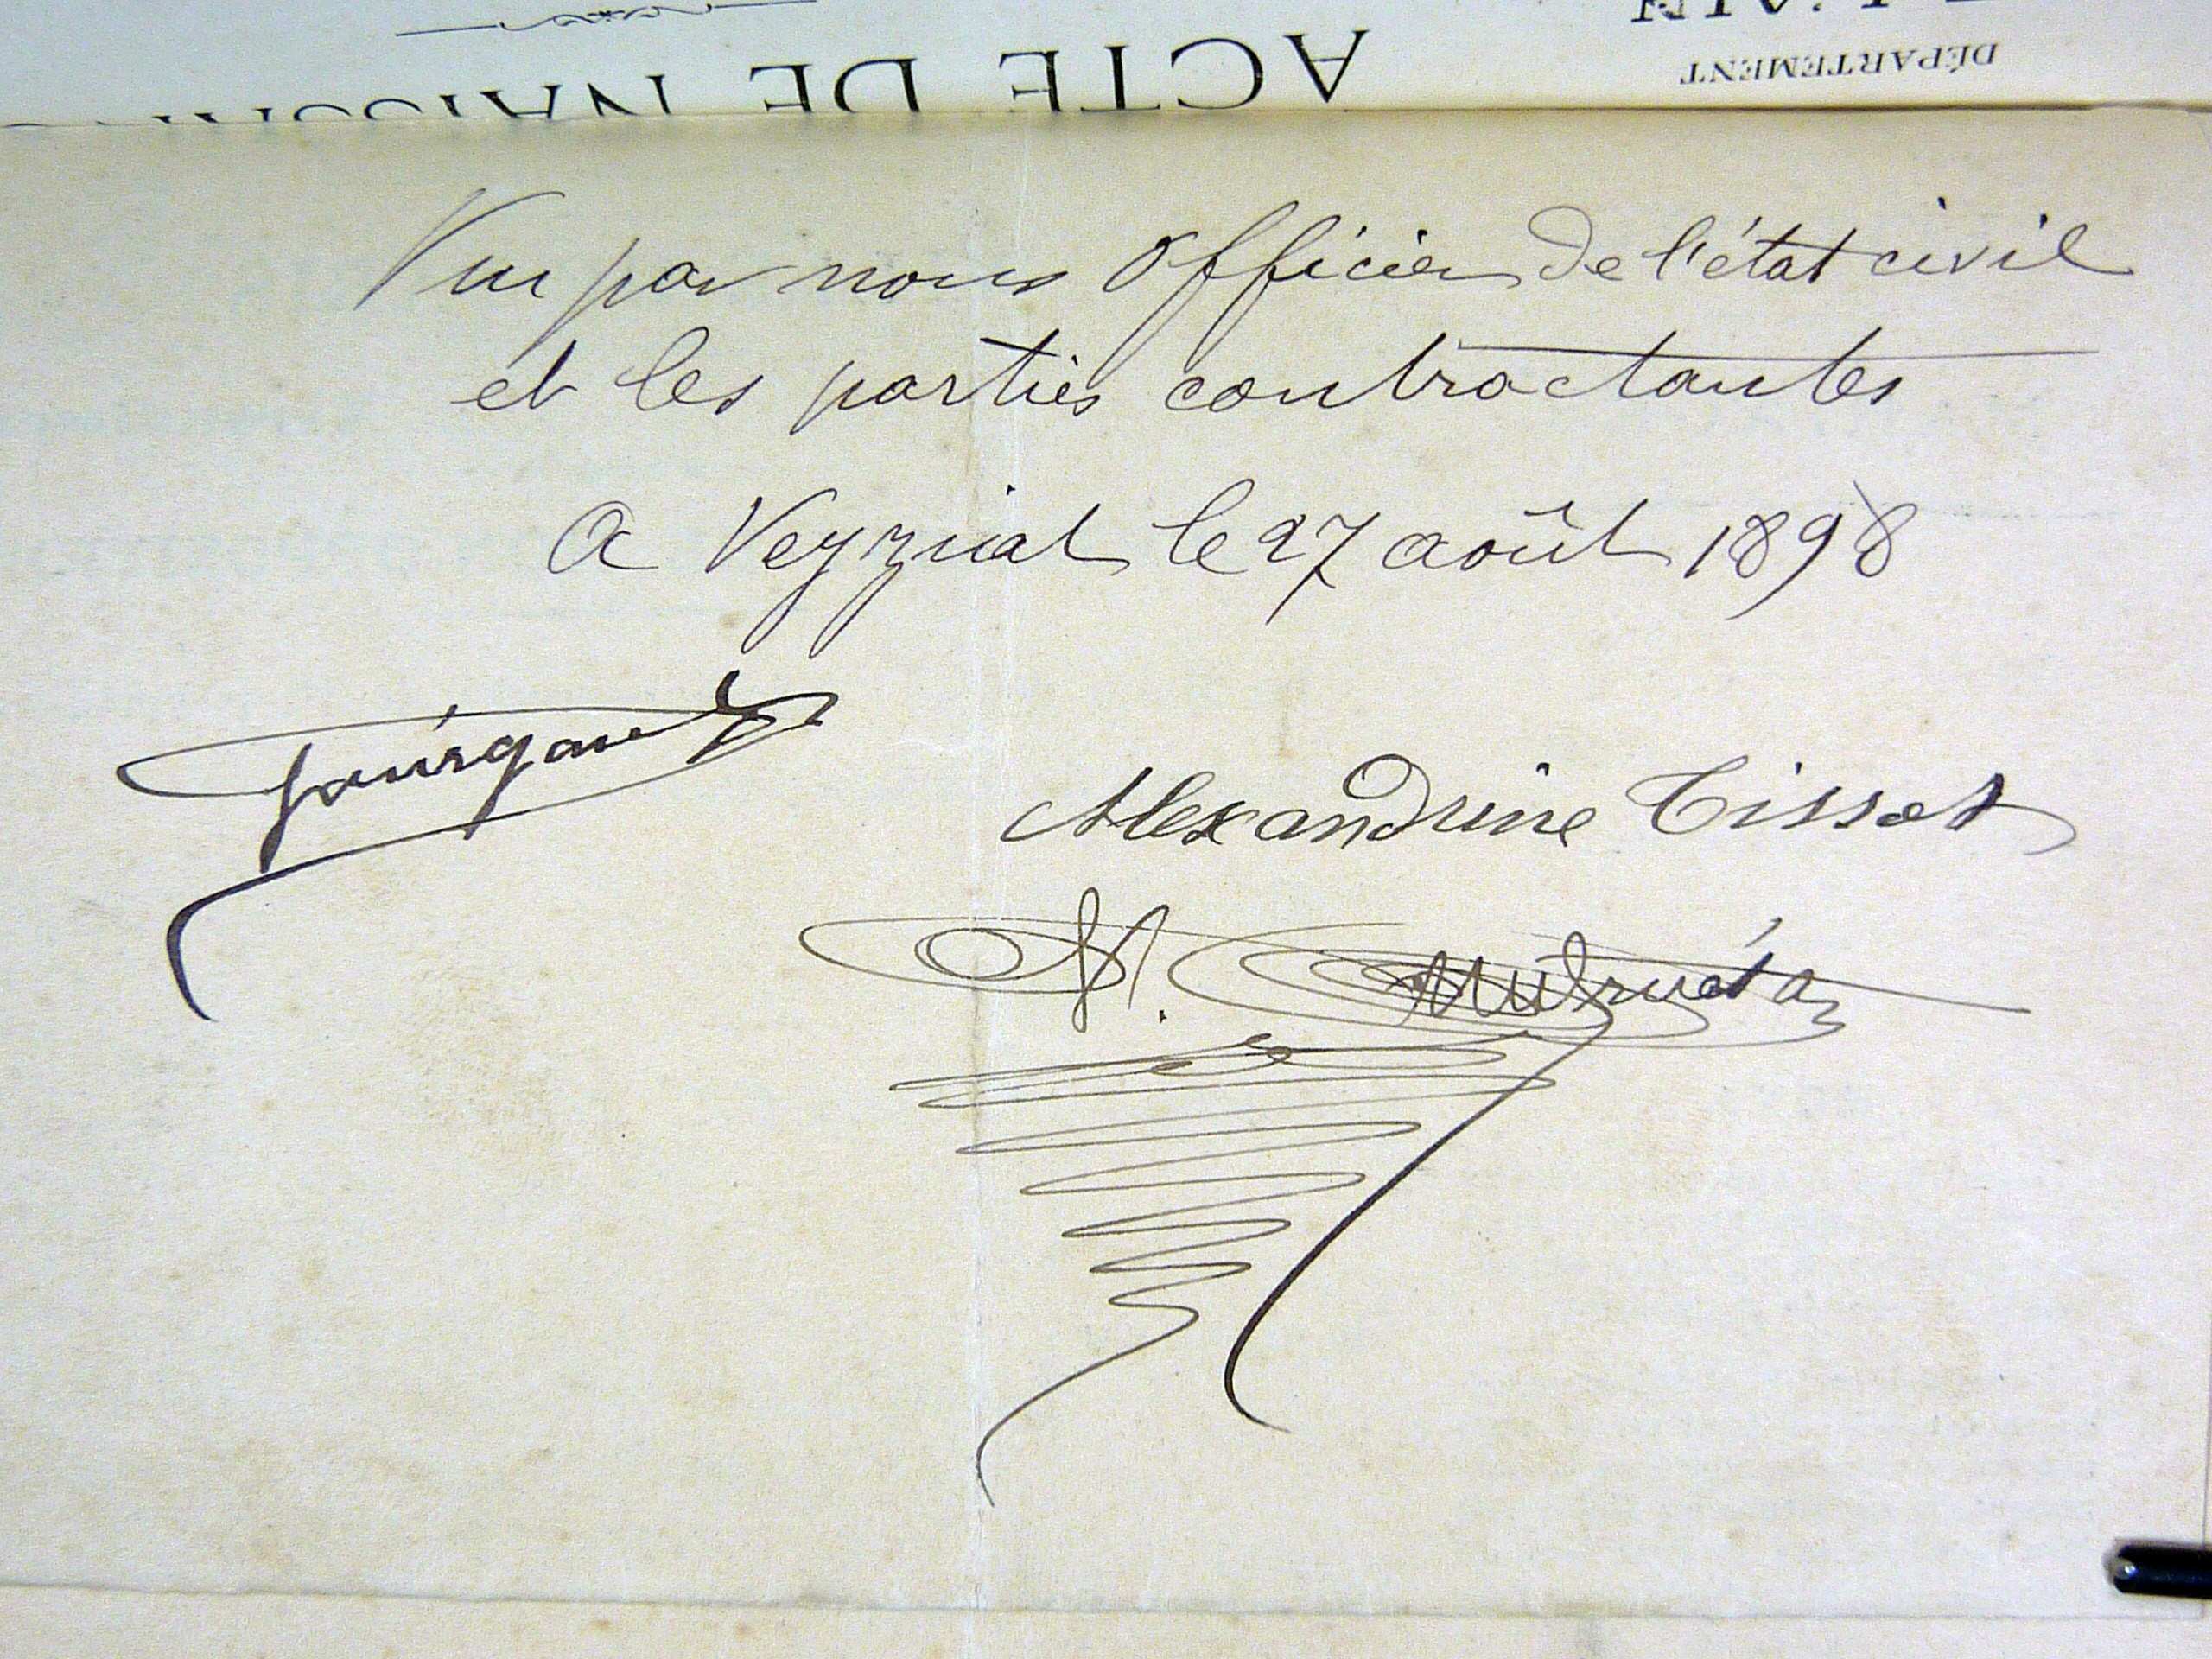 DÉPARTEMENT
L'AIN
ACTE DE
Vu par nous Officier de l'état civil
et les parties contractantes
A Veyziat le 27 août 1898
Alexandrine Tissot